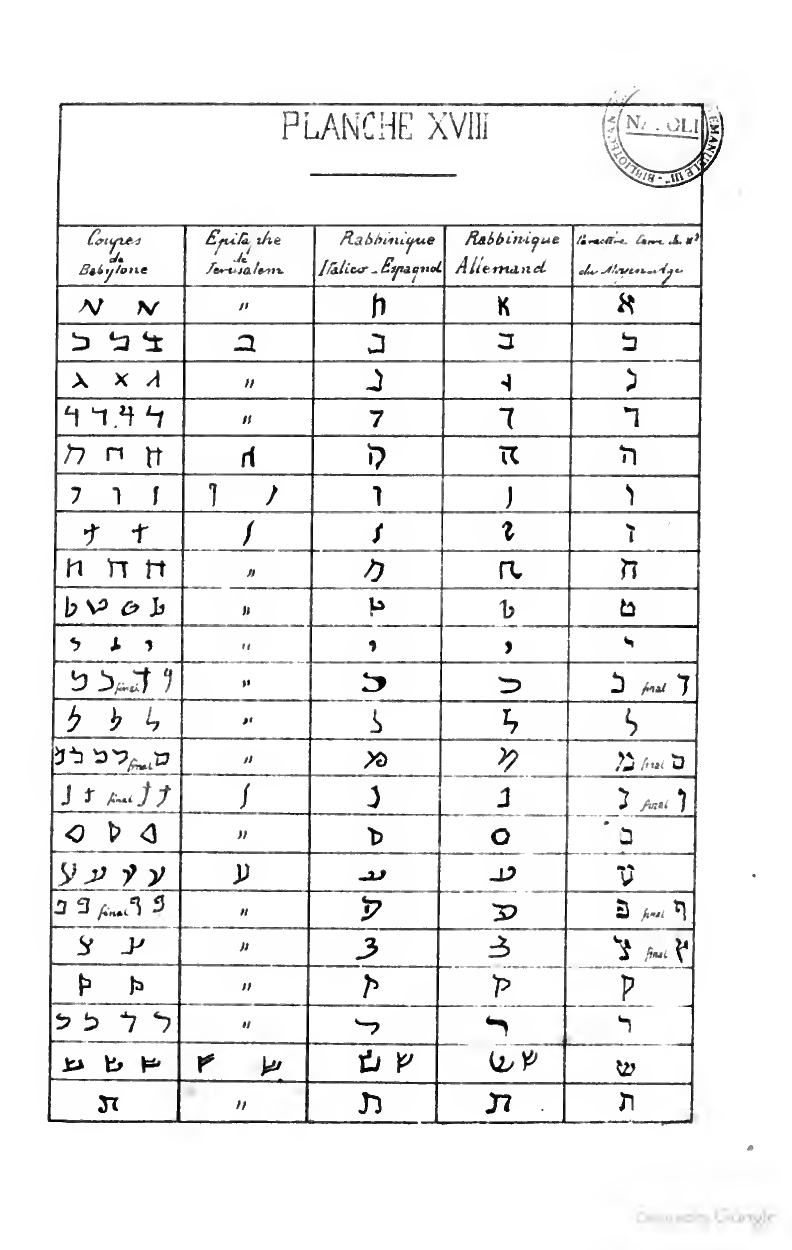 PLANCHE XVIII
NAPOLI
Coupes de Babylone
Epitaphe de Jerusalem
Rabbinique Italico-Espagnol
Rabbinique Allemand
du Moyen-age
א א " א א א
ב ב ב ב ב ב ב
ג ג ג " ג ג ג
ד ד ד ד " ד ד ד
ה ה ה ה ה ה ה
ו ו ו ו ו ו ו ו
ז ז ז ז ז ז
ח ח ח " ח ח ח
ט ט ט ט " ט ט ט
י י י " י י י
כ כ final ך ך " כ כ כ final ך
ל ל ל " ל ל ל
מ מ מ מ final ם " מ מ מ final ם
נ נ final ן ן ן נ נ נ final ן
ס ס ס " ס ס ס
ע ע ע ע ע ע ע ע
פ פ final ף ף " פ פ פ final ף
צ צ " צ צ צ final ץ
ק ק " ק ק ק
ר ר ר ר " ר ר ר
ש ש ש ש ש ש ש ש ש ש
ת " ת ת ת